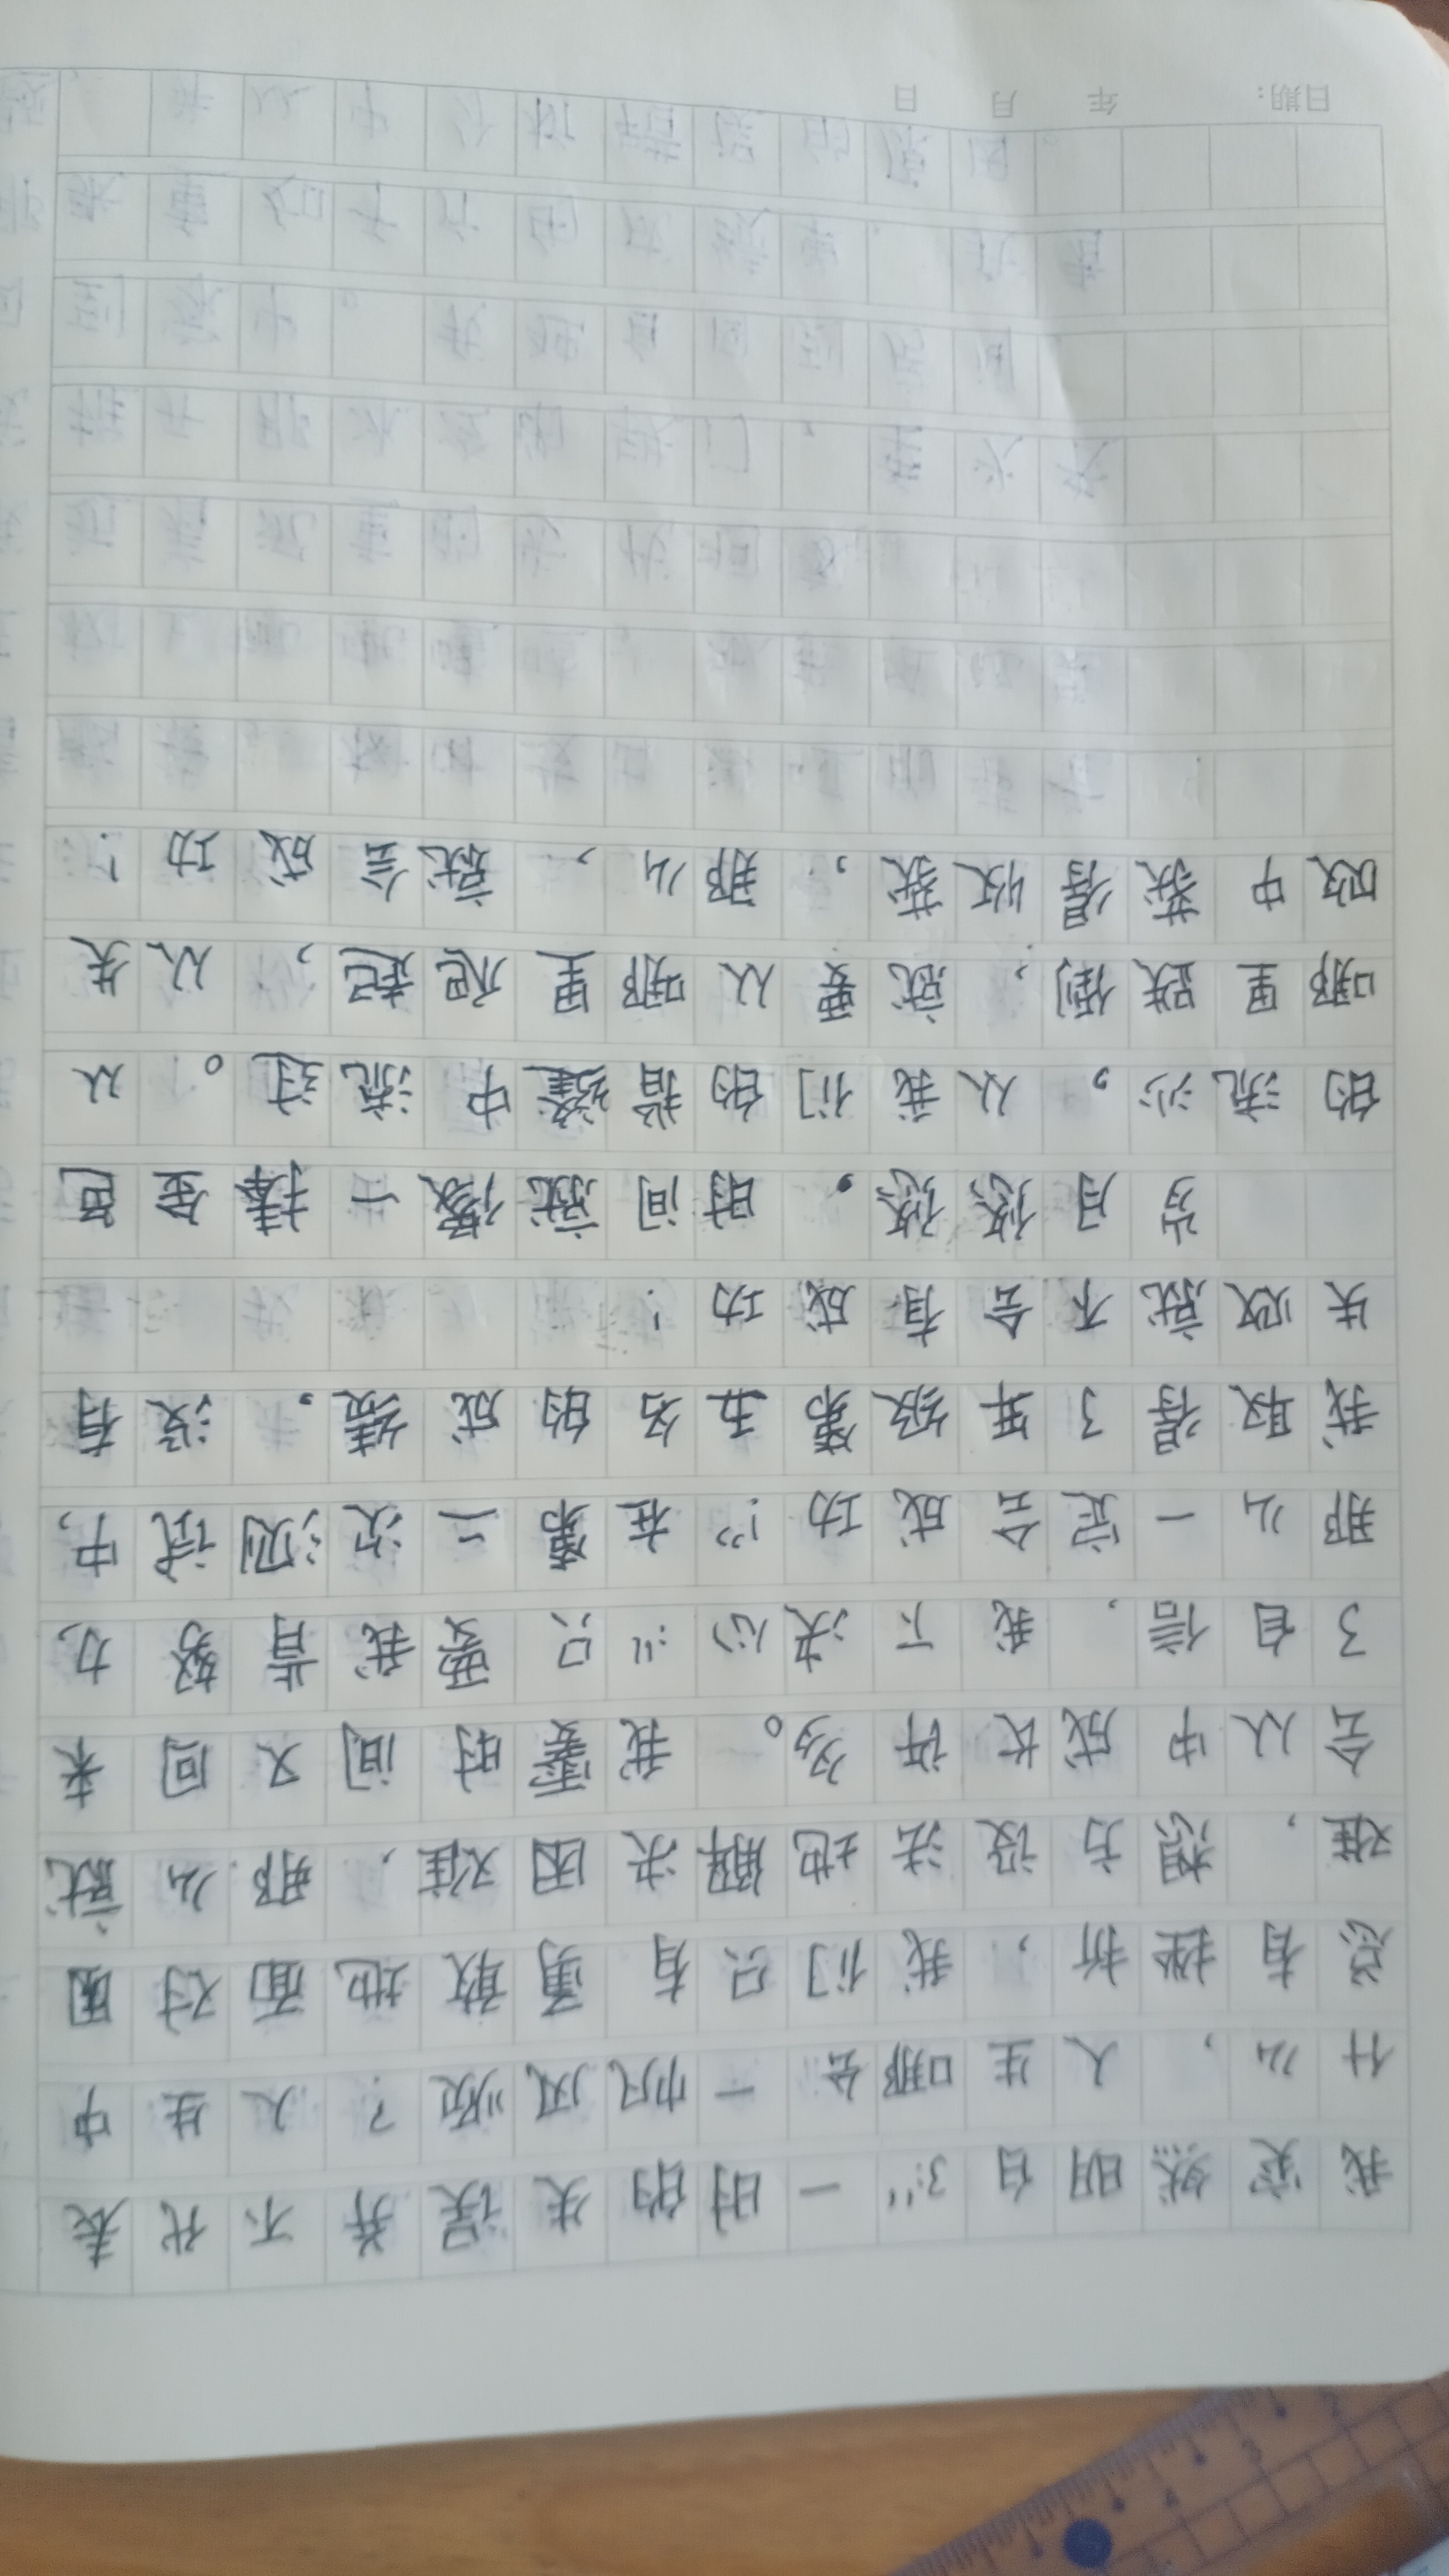 我突然明白了:"一时的失误并不代表
什么,人生哪会一帆风顺?人生中
总有挫折,我们只有勇敢地面对困
难,想方设法地解决困难,那么就
会从中成长许多。我霎时间又回来
了自信,我下决心:"只要我肯努力,
那么一定会成功!"在第二次测试中,
我取得了年级第五名的成绩。没有
失败就不会有成功!
岁月悠悠,时间就像一捧金色
的流沙,从我们的指缝中流过。从
哪里跌倒,就要从哪里爬起,从失
败中获得收获,那么,就会成功!
日期: 年 月 日